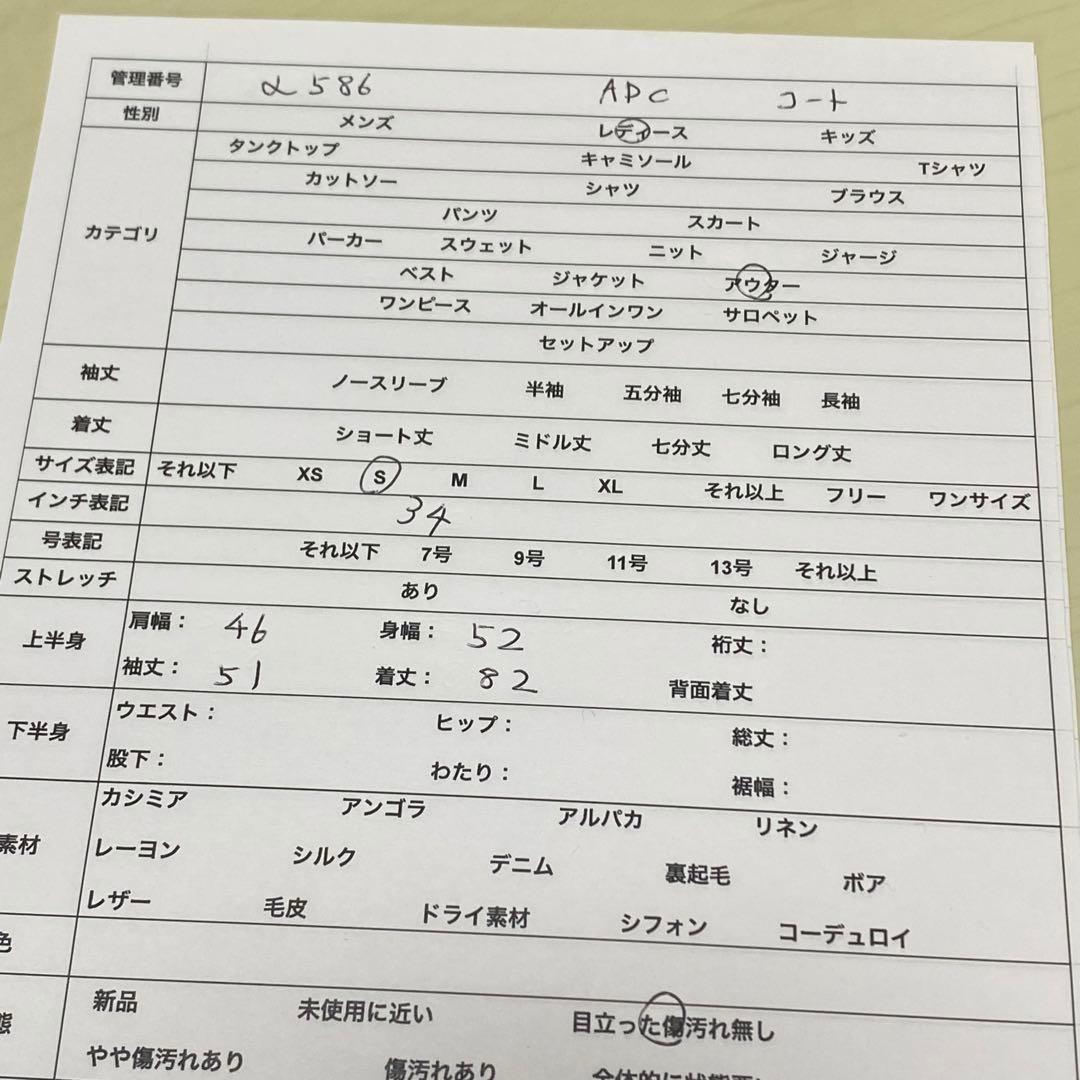 管理番号 α586 APC コート
性別 メンズ レディース キッズ
カテゴリ タンクトップ キャミソール Tシャツ
カットソー シャツ ブラウス
パンツ スカート
パーカー スウェット ニット ジャージ
ベスト ジャケット アウター
ワンピース オールインワン サロペット
セットアップ
袖丈 ノースリーブ 半袖 五分袖 七分袖 長袖
着丈 ショート丈 ミドル丈 七分丈 ロング丈
サイズ表記 それ以下 XS S M L XL それ以上 フリー ワンサイズ
インチ表記 34
号表記 それ以下 7号 9号 11号 13号 それ以上
ストレッチ あり なし
上半身 肩幅: 46 身幅: 52 裄丈:
袖丈: 51 着丈: 82 背面着丈
下半身 ウエスト: ヒップ: 総丈:
股下: わたり: 裾幅:
カシミア アンゴラ アルパカ リネン
素材 レーヨン シルク デニム 裏起毛 ボア
レザー 毛皮 ドライ素材 シフォン コーデュロイ
色
態 新品 未使用に近い 目立った傷汚れ無し
やや傷汚れあり 傷汚れあり 全体的に状態悪